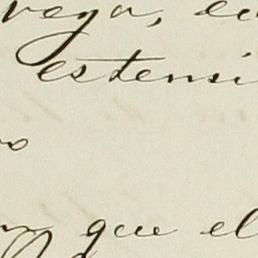 vega, ed
estensi
o
que el